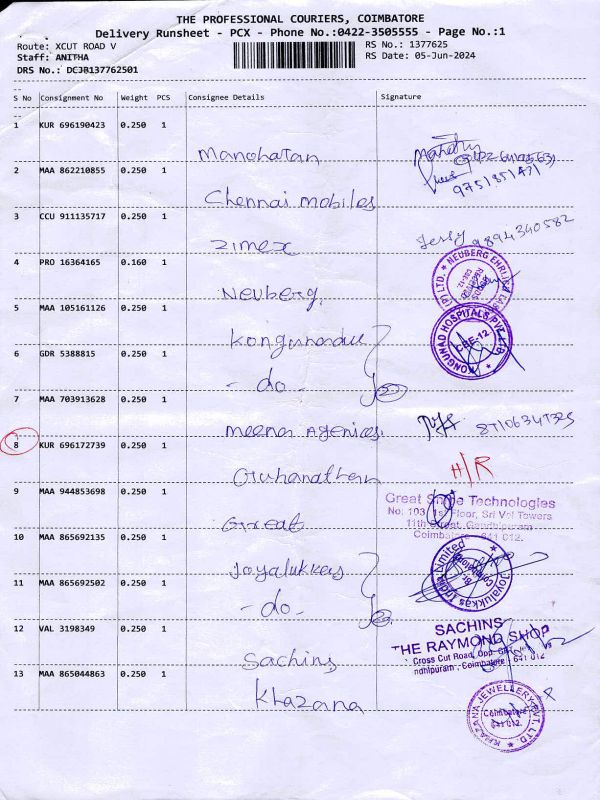 THE PROFESSIONAL COURIERS, COIMBATORE
Delivery Runsheet - PCX - Phone No.:0422-3505555 - Page No.:1
Route: XCUT ROAD V
RS No.: 1377625
Staff: ANITHA
RS Date: 05-Jun-2024
DRS No.: DCJB137762501
S No Consignment No Weight PCS Consignee Details Signature
1 KUR 696190423 0.250 1
Manohatan
2 MAA 862210855 0.250 1
9751351471
Chennai mobiles
3 CCU 911135717 0.250 1
Zimex
Jerfy 9894340582
4 PRO 16364165 0.160 1
Neuberg
(P) LTD. ★ NEUBERG EHRLICH LAB
5 MAA 105161126 0.250 1
Kongunadu
KONGUNAD HOSPITALS PVT LTD
CBE-12
6 GDR 5388815 0.250 1
- do -
7 MAA 703913628 0.250 1
Meena Agenices
8 KUR 696172739 0.250 1
Guhanathan
H/R
9 MAA 944853698 0.250 1
Great
Great Shine Technologies
No: 103, 1st Floor, Sri Vel Towers
11th Street, Gandhipuram
Coimbatore - 641 012.
10 MAA 865692135 0.250 1
Joyalukkas
Joyalukkas India Limited
Coimbatore
11 MAA 865692502 0.250 1
- do -
12 VAL 3198349 0.250 1
Sachins
SACHINS
THE RAYMOND SHOP
Cross Cut Road, Opp.
ndhipuram, Coimbatore - 641 012
13 MAA 865044863 0.250 1
Khazana
KHAZANA JEWELLERY PVT. LTD
Coimbatore
641 012.